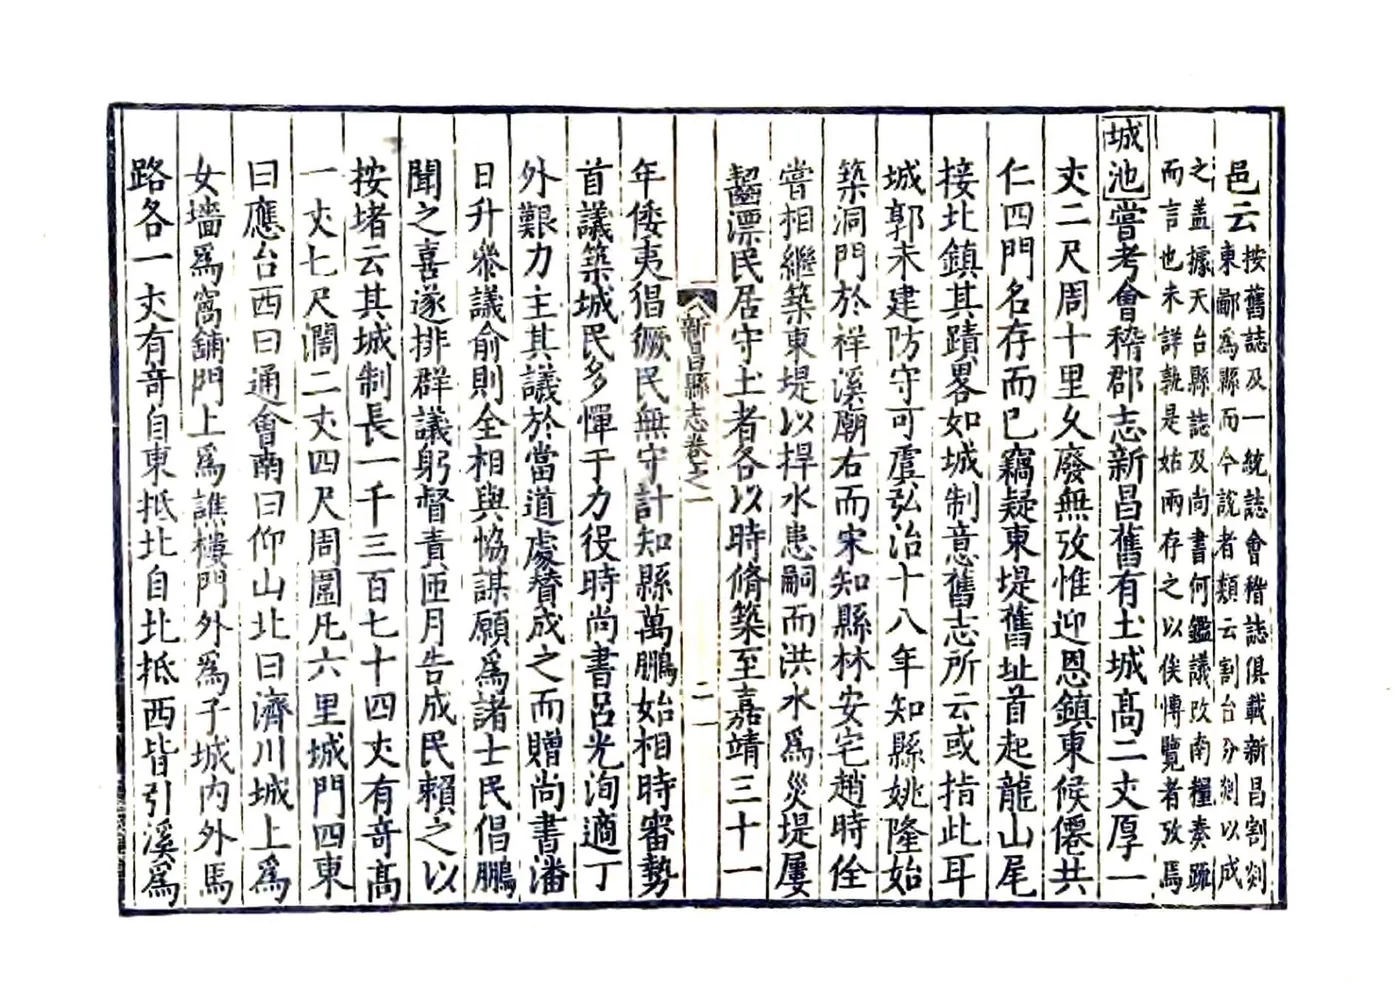 邑云按舊誌及一統誌會稽誌俱載新昌割剡
東鄙爲縣而今說者類云割台分剡以成
之蓋據天台縣誌及尚書何鑑議改南糧奏疏
而言也未詳孰是姑兩存之以俟博覽者攷焉
城池嘗考會稽郡志新昌舊有土城高二丈厚一
丈二尺周十里久廢無攷惟迎恩鎮東候僊共
仁四門名存而已竊疑東堤舊址首起龍山尾
接北鎮其蹟畧如城制意舊志所云或指此耳
城郭未建防守可虞弘治十八年知縣姚隆始
築洞門於祥溪廟右而宋知縣林安宅趙時佺
嘗相繼築東堤以捍水患嗣而洪水爲災堤屢
齧漂民居守土者各以時脩築至嘉靖三十一
新昌縣志卷之一
二
年倭夷倡獗民無守計知縣萬鵬始相時審勢
首議築城民多憚于力役時尚書呂光洵適丁
外艱力主其議於當道處贊成之而贈尚書潘
日升叅議俞則全相與恊謀願爲諸士民倡鵬
聞之喜遂排群議躬督責匝月告成民賴之以
按堵云其城制長一千三百七十四丈有奇高
一丈七尺濶二丈四尺周圍凡六里城門四東
曰應台西曰通會南曰仰山北曰濟川城上爲
女墻爲窩舖門上爲譙樓門外爲子城內外馬
路各一丈有奇自東抵北自北抵西皆引溪爲